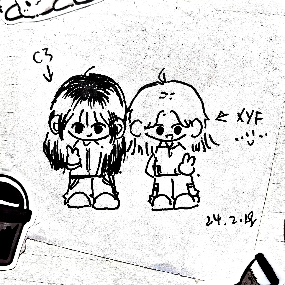 C3
XYF
24.2.18